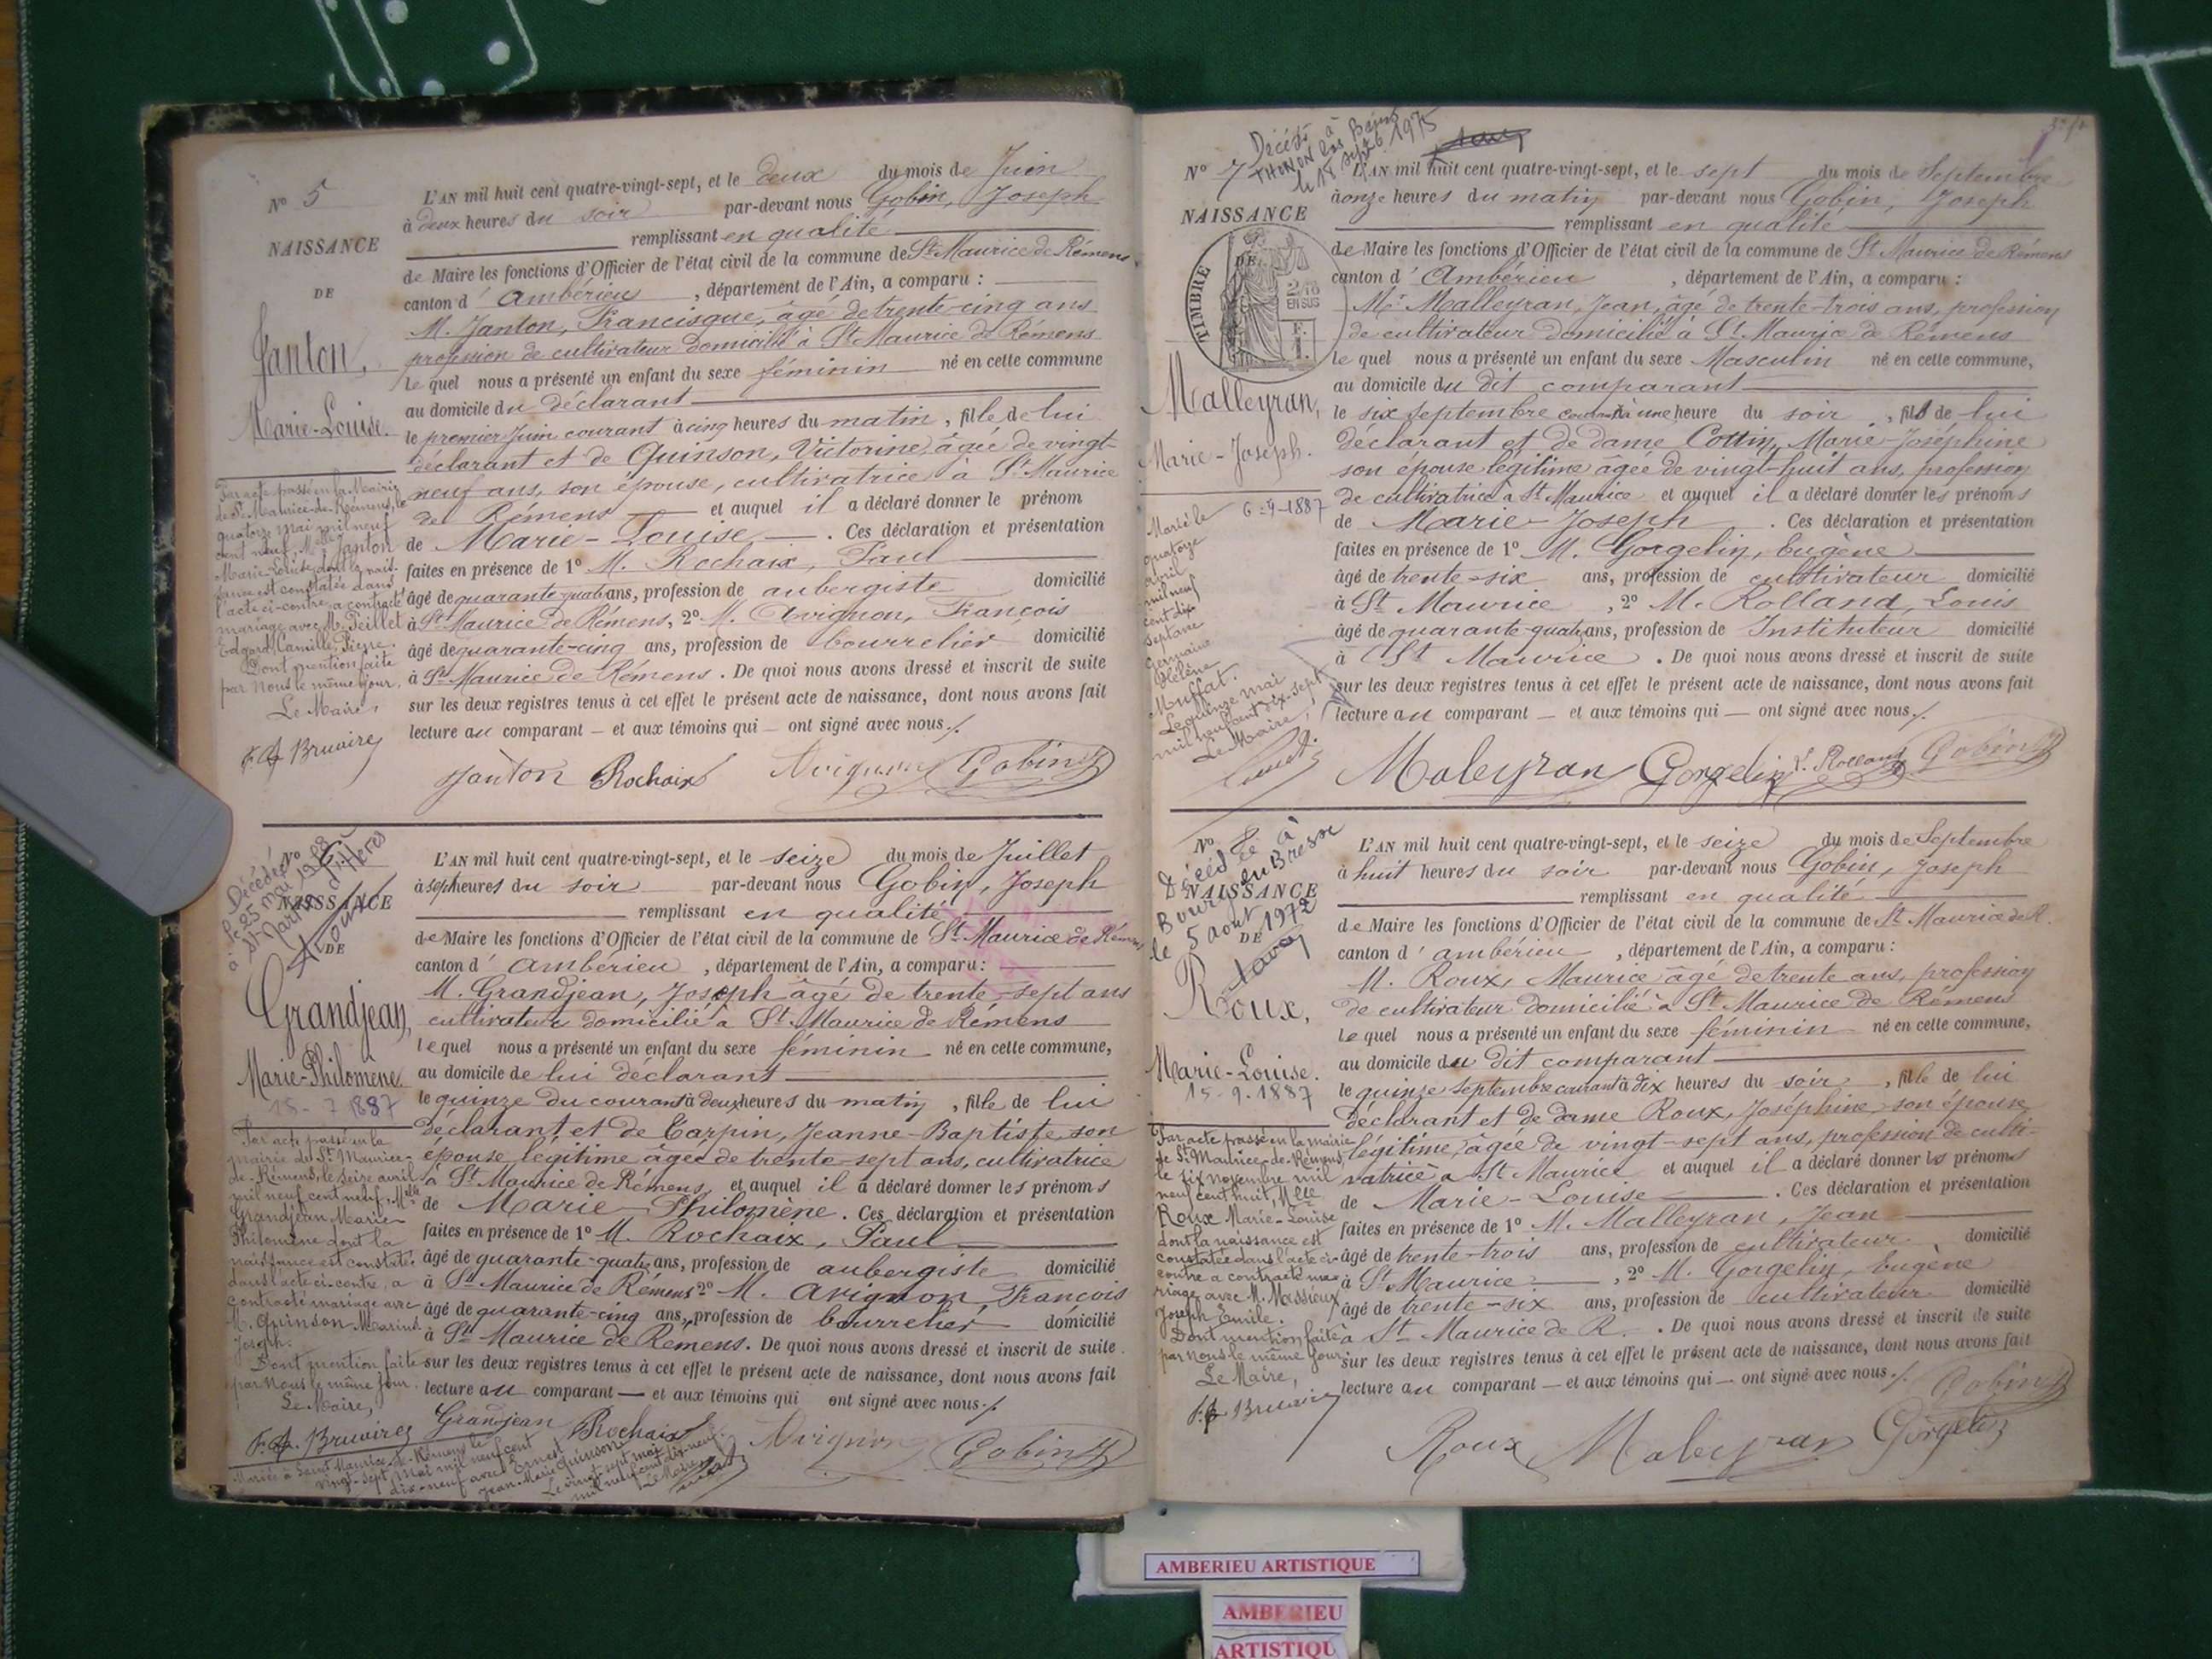 N° 5
NAISSANCE
DE
Janton,
Marie-Louise.
Par acte passé en la Mairie
de St-Maurice-de-Rémens, le
quatorze mai mil neuf
cent neuf, Melle Janton
Marie-Louise dont la nais-
sance est constatée dans
l'acte ci-contre, a contracté
mariage avec M. Peillet
Edgard Camille, Pierre.
Dont mention faite
par nous le même jour.
Le Maire,
F. A. Bruaires
L'AN mil huit cent quatre-vingt-sept, et le deux du mois de Juin
à deux heures du soir par-devant nous Gobin, Joseph
remplissant en qualité
de Maire les fonctions d'Officier de l'état civil de la commune de St Maurice de Rémens
canton d'Ambérieu, département de l'Ain, a comparu :
M. Janton, Francisque, âgé de trente-cinq ans
profession de cultivateur domicilié à St Maurice de Rémens
le quel nous a présenté un enfant du sexe féminin né en cette commune
au domicile du déclarant
le premier Juin courant à cinq heures du matin, fille de lui
déclarant et de Quinson, Victorine, âgée de vingt-
neuf ans, son épouse, cultivatrice à St Maurice
de Rémens et auquel il a déclaré donner le prénom
de Marie-Louise. Ces déclaration et présentation
faites en présence de 1° M. Rochaix, Paul
âgé de quarante-quatre ans, profession de aubergiste domicilié
à St Maurice de Rémens, 2° M. Avignon, François
âgé de quarante-cinq ans, profession de bourrelier domicilié
à St Maurice de Rémens. De quoi nous avons dressé et inscrit de suite
sur les deux registres tenus à cet effet le présent acte de naissance, dont nous avons fait
lecture au comparant — et aux témoins qui — ont signé avec nous ./.
Janton Rochaix Avignon Gobin
N° 6
Décédée
le 25 mai 1968
à St Martin d'Hères
NAISSANCE
DE
Grandjean,
Marie-Philomène.
15-7 1887
Par acte passé en la
mairie de St Maurice-
de-Rémens, le seize avril
mil neuf cent neuf, Melle
Grandjean Marie-
Philomène dont la
naissance est constatée
dans l'acte ci-contre, a
contracté mariage avec
M. Quinson Marius
Joseph.
Dont mention faite
par nous le même jour.
Le Maire,
F. A. Bruaires
Mariée à Saint Maurice-de-Rémens le
vingt-sept mai mil neuf cent
dix-neuf avec Ernest
Jean-Marie Quinson
Le vingt-sept mai
mil neuf cent dix-neuf.
Le Maire
L'AN mil huit cent quatre-vingt-sept, et le seize du mois de Juillet
à sept heures du soir par-devant nous Gobin, Joseph
remplissant en qualité
de Maire les fonctions d'Officier de l'état civil de la commune de St Maurice de Rémens
canton d'Ambérieu, département de l'Ain, a comparu :
M. Grandjean, Joseph âgé de trente-sept ans
cultivateur domicilié à St Maurice de Rémens
le quel nous a présenté un enfant du sexe féminin né en cette commune,
au domicile de lui déclarant
le quinze du courant à deux heures du matin, fille de lui
déclarant et de Carpin, Jeanne-Baptiste, son
épouse légitime âgée de trente-sept ans, cultivatrice
à St Maurice de Rémens, et auquel il a déclaré donner les prénoms
de Marie Philomène. Ces déclaration et présentation
faites en présence de 1° M. Rochaix, Paul
âgé de quarante-quatre ans, profession de aubergiste domicilié
à St Maurice de Rémens 2° M. Avignon, François
âgé de quarante-cinq ans, profession de bourrelier domicilié
à St Maurice de Rémens. De quoi nous avons dressé et inscrit de suite
sur les deux registres tenus à cet effet le présent acte de naissance, dont nous avons fait
lecture au comparant — et aux témoins qui ont signé avec nous ./.
Grandjean Rochaix Avignon Gobin
N° 7
Décédé à
THONON les Bains
le 18 sept 1975
NAISSANCE
DE
TIMBRE
2/10
EN SUS
Malleyran,
Marie-Joseph.
6-9-1887
Marié le
quatorze
avril
mil neuf
cent dix
sept avec
Germaine
Hélène
Muffat.
Le quinze mai
mil neuf cent dix-sept
Le Maire,
L'AN mil huit cent quatre-vingt-sept, et le sept du mois de Septembre
à onze heures du matin par-devant nous Gobin, Joseph
remplissant en qualité
de Maire les fonctions d'Officier de l'état civil de la commune de St Maurice de Rémens
canton d'Ambérieu, département de l'Ain, a comparu :
Mr Malleyran, Jean, âgé de trente-trois ans, profession
de cultivateur domicilié à St Maurice de Rémens
le quel nous a présenté un enfant du sexe Masculin né en cette commune,
au domicile du dit comparant
le six septembre courant à une heure du soir, fils de lui
déclarant et de dame Cottin, Marie-Joséphine
son épouse légitime âgée de vingt-huit ans, profession
de cultivatrice à St Maurice et auquel il a déclaré donner les prénoms
de Marie-Joseph. Ces déclaration et présentation
faites en présence de 1° M. Gorgelin, Eugène
âgé de trente-six ans, profession de cultivateur domicilié
à St Maurice, 2° M. Rolland, Louis
âgé de quarante-quatre ans, profession de Instituteur domicilié
à St Maurice. De quoi nous avons dressé et inscrit de suite
sur les deux registres tenus à cet effet le présent acte de naissance, dont nous avons fait
lecture au comparant — et aux témoins qui — ont signé avec nous ./.
Maleyran Gorgelin L. Rolland Gobin
N° 8
Décédée à
Bourg en Bresse
le 5 août 1972
NAISSANCE
DE
Roux,
Marie-Louise.
15-9.1887
Par acte passé en la mairie
de St-Maurice-de-Rémens,
le six novembre mil
neuf cent huit, Melle
Roux Marie-Louise
dont la naissance est
constatée dans l'acte ci-
contre a contracté ma-
riage avec M. Massieux
Joseph Emile.
Dont mention faite
par nous le même jour.
Le Maire,
F. A. Bruaires
L'AN mil huit cent quatre-vingt-sept, et le seize du mois de Septembre
à huit heures du soir par-devant nous Gobin, Joseph
remplissant en qualité
de Maire les fonctions d'Officier de l'état civil de la commune de St Maurice de R.
canton d'ambérieu, département de l'Ain, a comparu :
M. Roux, Maurice âgé de trente ans, profession
de cultivateur domicilié à St Maurice de Rémens
le quel nous a présenté un enfant du sexe féminin né en cette commune,
au domicile du dit comparant
le quinze septembre courant à dix heures du soir, fille de lui
déclarant et de dame Roux, Joséphine, son épouse
légitime, âgée de vingt-sept ans, profession de culti-
vatrice à St Maurice et auquel il a déclaré donner les prénoms
de Marie-Louise. Ces déclaration et présentation
faites en présence de 1° M. Malleyran, Jean
âgé de trente-trois ans, profession de cultivateur domicilié
à St Maurice, 2° M. Gorgelin, Eugène
âgé de trente-six ans, profession de cultivateur domicilié
à St Maurice de R. De quoi nous avons dressé et inscrit de suite
sur les deux registres tenus à cet effet le présent acte de naissance, dont nous avons fait
lecture au comparant — et aux témoins qui — ont signé avec nous ./.
Gobin
Roux Maleyran Gorgelin
AMBERIEU ARTISTIQUE
AMBERIEU
ARTISTIQU